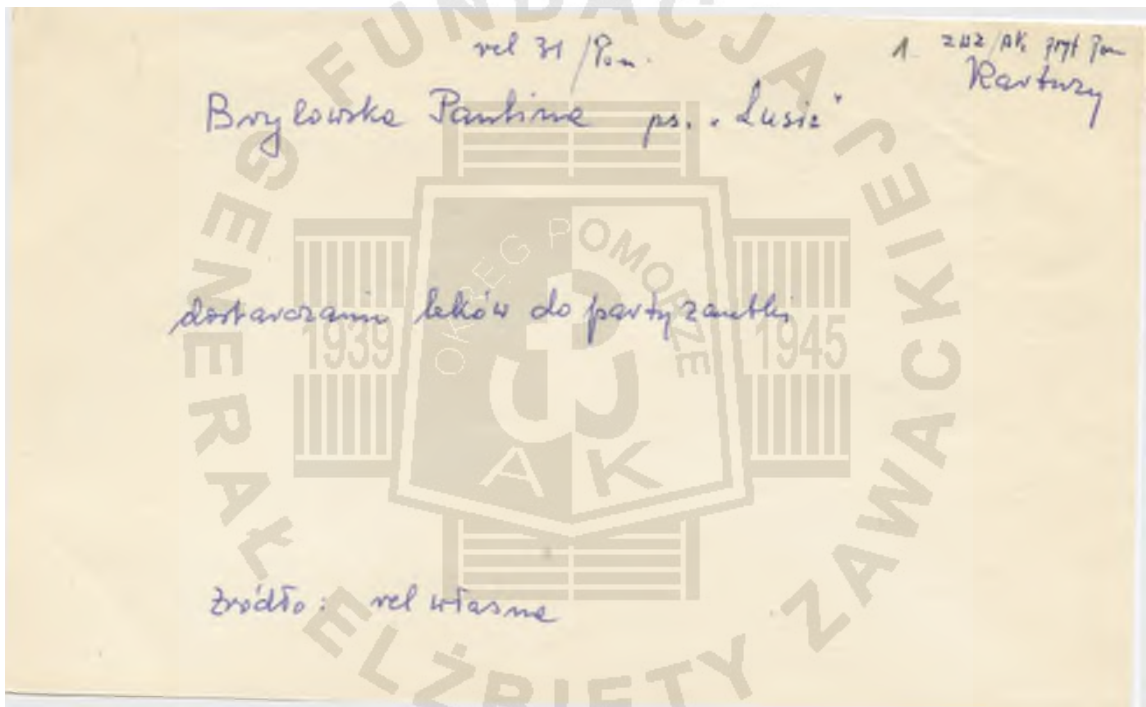 rel 31/Pom.
1. ZWZ/AK Pom
Kartuzy
Brylowska Paulina ps. „Lusia"
dostarczanie leków do partyzantki
źródło: rel własna
FUNDACJA
GENERAŁ ELŻBIETY ZAWACKIEJ
OKRĘG POMORZE
1939 1945
AK